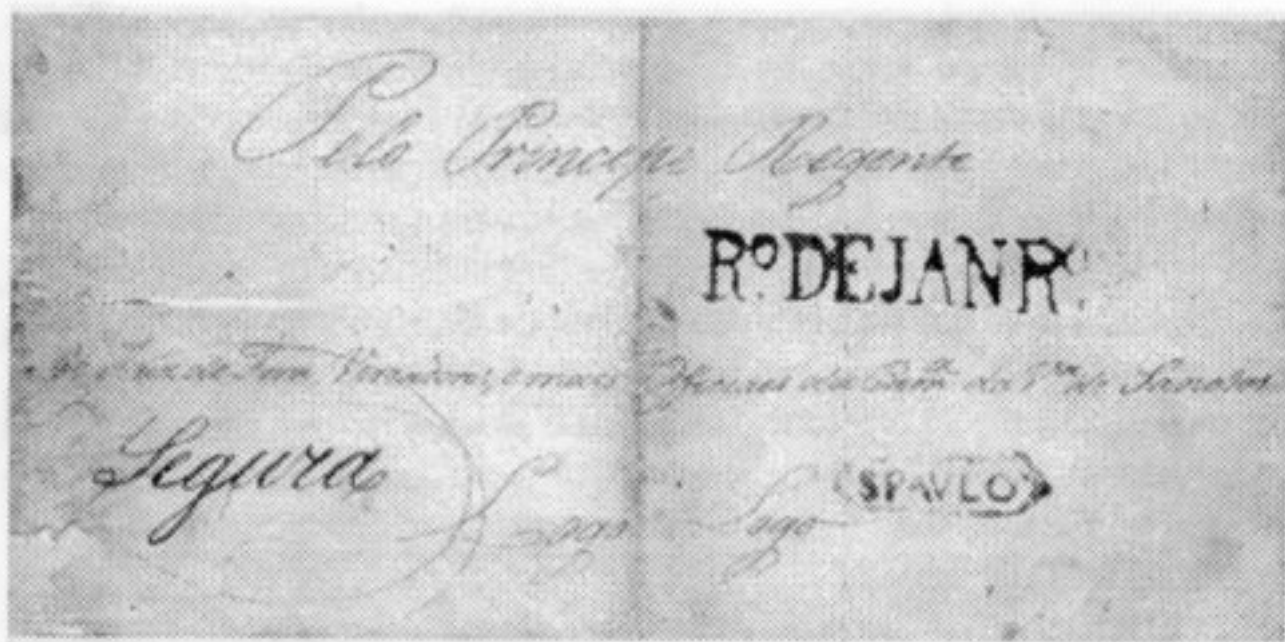 Pelo Principe Regente
Rº DE JANRº
Juiz de Fora Vereadores, e mais Officiaes da Camª da Vª de
Segura
Logo Logo
S PAVLO